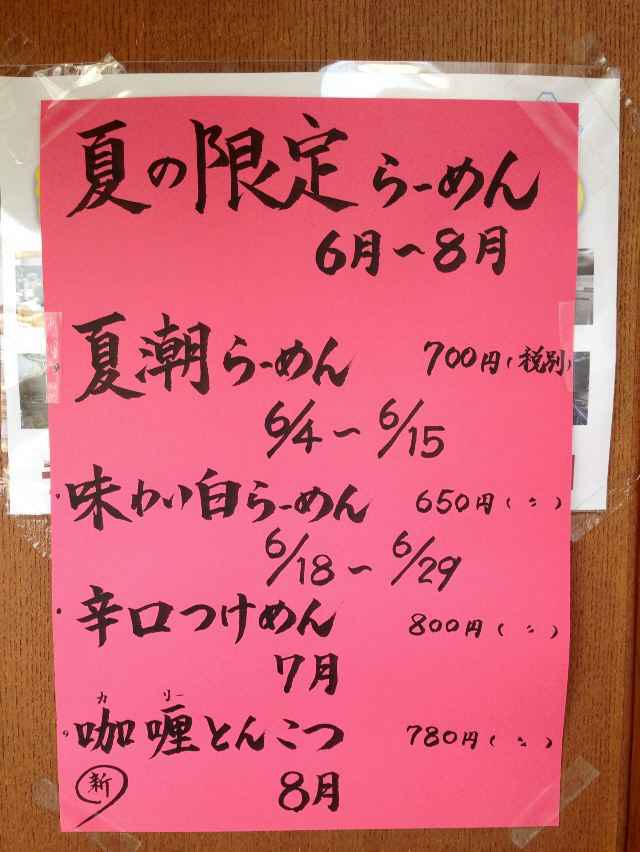 夏の限定らーめん
6月～8月
・夏潮らーめん 700円(税別)
6/4～6/15
・味わい白らーめん 650円(〃)
6/18～6/29
・辛口つけめん 800円(〃)
7月
カリー
・咖喱とんこつ 780円(〃)
新 8月